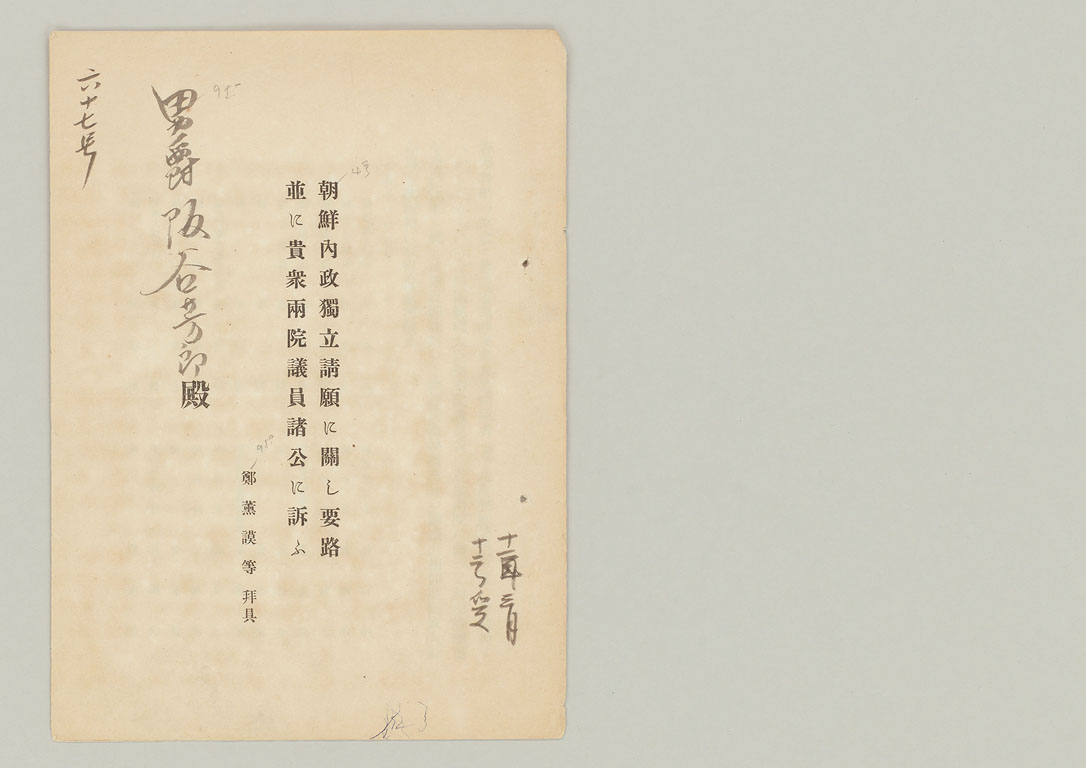 十一年三月
十二日受
朝鮮内政獨立請願に關し要路
並に貴衆兩院議員諸公に訴ふ
鄭薫謨等拜具
男爵阪谷芳郎殿
六十七号